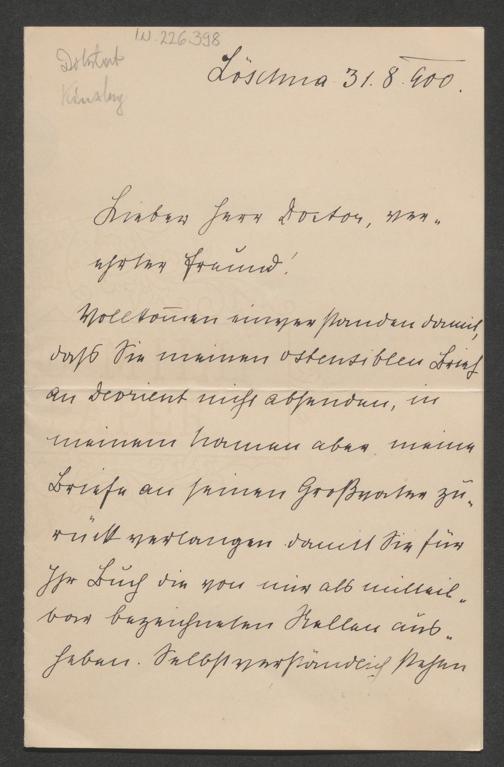 IN 226.398
Löschna 31. 8. 900.
Lieber Herr Doctor, ver-
ehrter Freund!
Vollkom̅en einverstanden damit,
daß Sie meinen ostensiblen Brief
an Devrient nicht absenden, in
meinem Namen aber meine
Briefe an seinen Großvater zu-
rück verlangen damit Sie für
Ihr Buch die von mir als mitteil-
bar bezeichneten Stellen aus-
heben. Selbstverständlich stehen